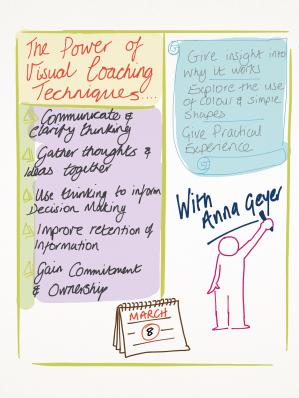 The Power of
Visual Coaching
Techniques....
Communicate &
clarify thinking
Gather thoughts &
ideas together
Use thinking to inform
Decision Making
Improve retention of
Information
Gain Commitment
& Ownership
Give insight into
why it works
Explore the use
of colour & simple
Shapes
Give Practical
Experience
With
Anna Geyer
MARCH
8